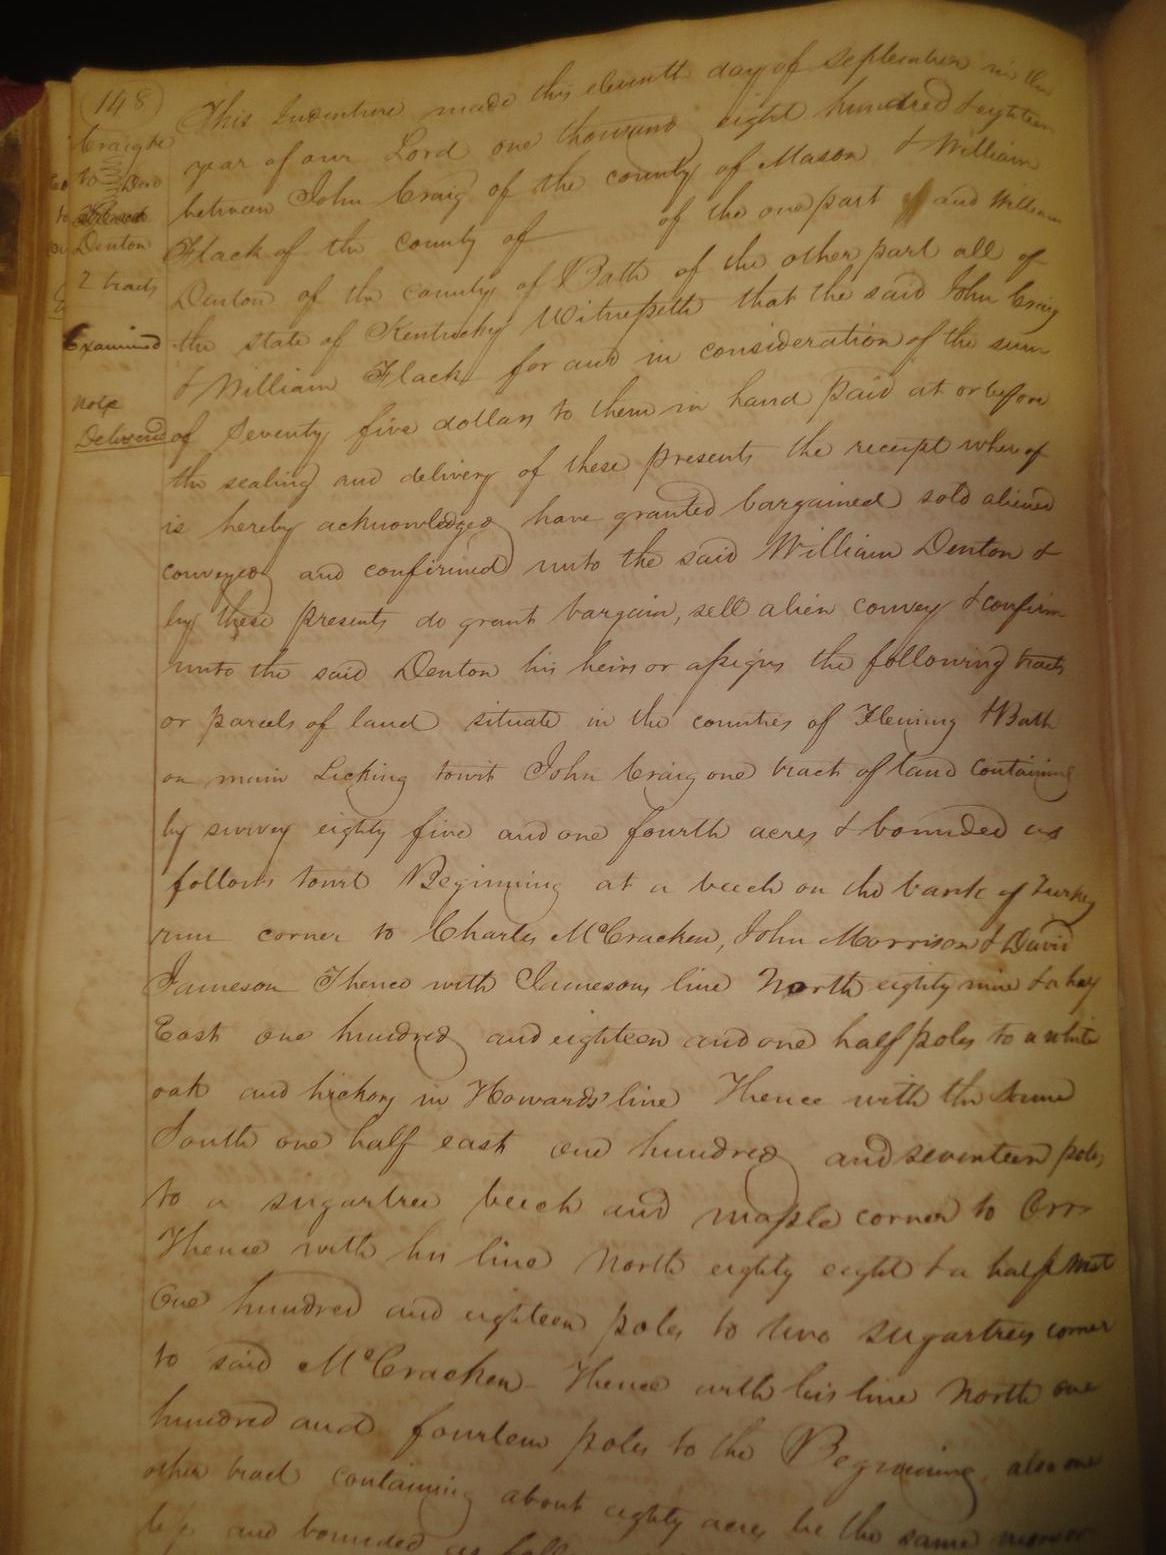 (148)
Craig &c
to Deed
Denton
2 tracts
Examined
note
Delivered
This Indenture made this eleventh day of september in the
year of our Lord one thousand eight hundred & eighteen
between John Craig of the county of Mason & William
Flack of the county of of the one part and William
Denton of the county of Bath of the other part all of
the state of Kentucky Witnesseth that the said John Craig
& William Flack for and in consideration of the sum
of Seventy five dollars to them in hand paid at or before
the sealing and delivery of these presents the receipt where of
is hereby acknowledged have granted bargained sold aliened
conveyed and confirmed unto the said William Denton &
by these presents do grant bargain, sell alien convey & confirm
unto the said Denton his heirs or assigns the following tracts
or parcels of land situate in the counties of Fleming & Bath
on main Licking towit John Craig one tract of land containing
by survey eighty five and one fourth acres & bounded as
follows towit Beginning at a beech on the bank of Turkey
run corner to Charles McCracken, John Morrison & David
Jameson Thence with Jamesons line North eighty nine & a half
East one hundred and eighteen and one half poles to a white
oak and hickory in Howards' line Thence with the same
South one half east one hundred and seventeen poles
to a sugartree beech and maple corner to Orr
Thence with his line North eighty eight & a half west
One hundred and eighteen poles to two sugartrees corner
to said McCracken Thence with his line North one
hundred and fourteen poles to the Beginning, also one
other tract containing about eighty acres be the same more or
less and bounded as